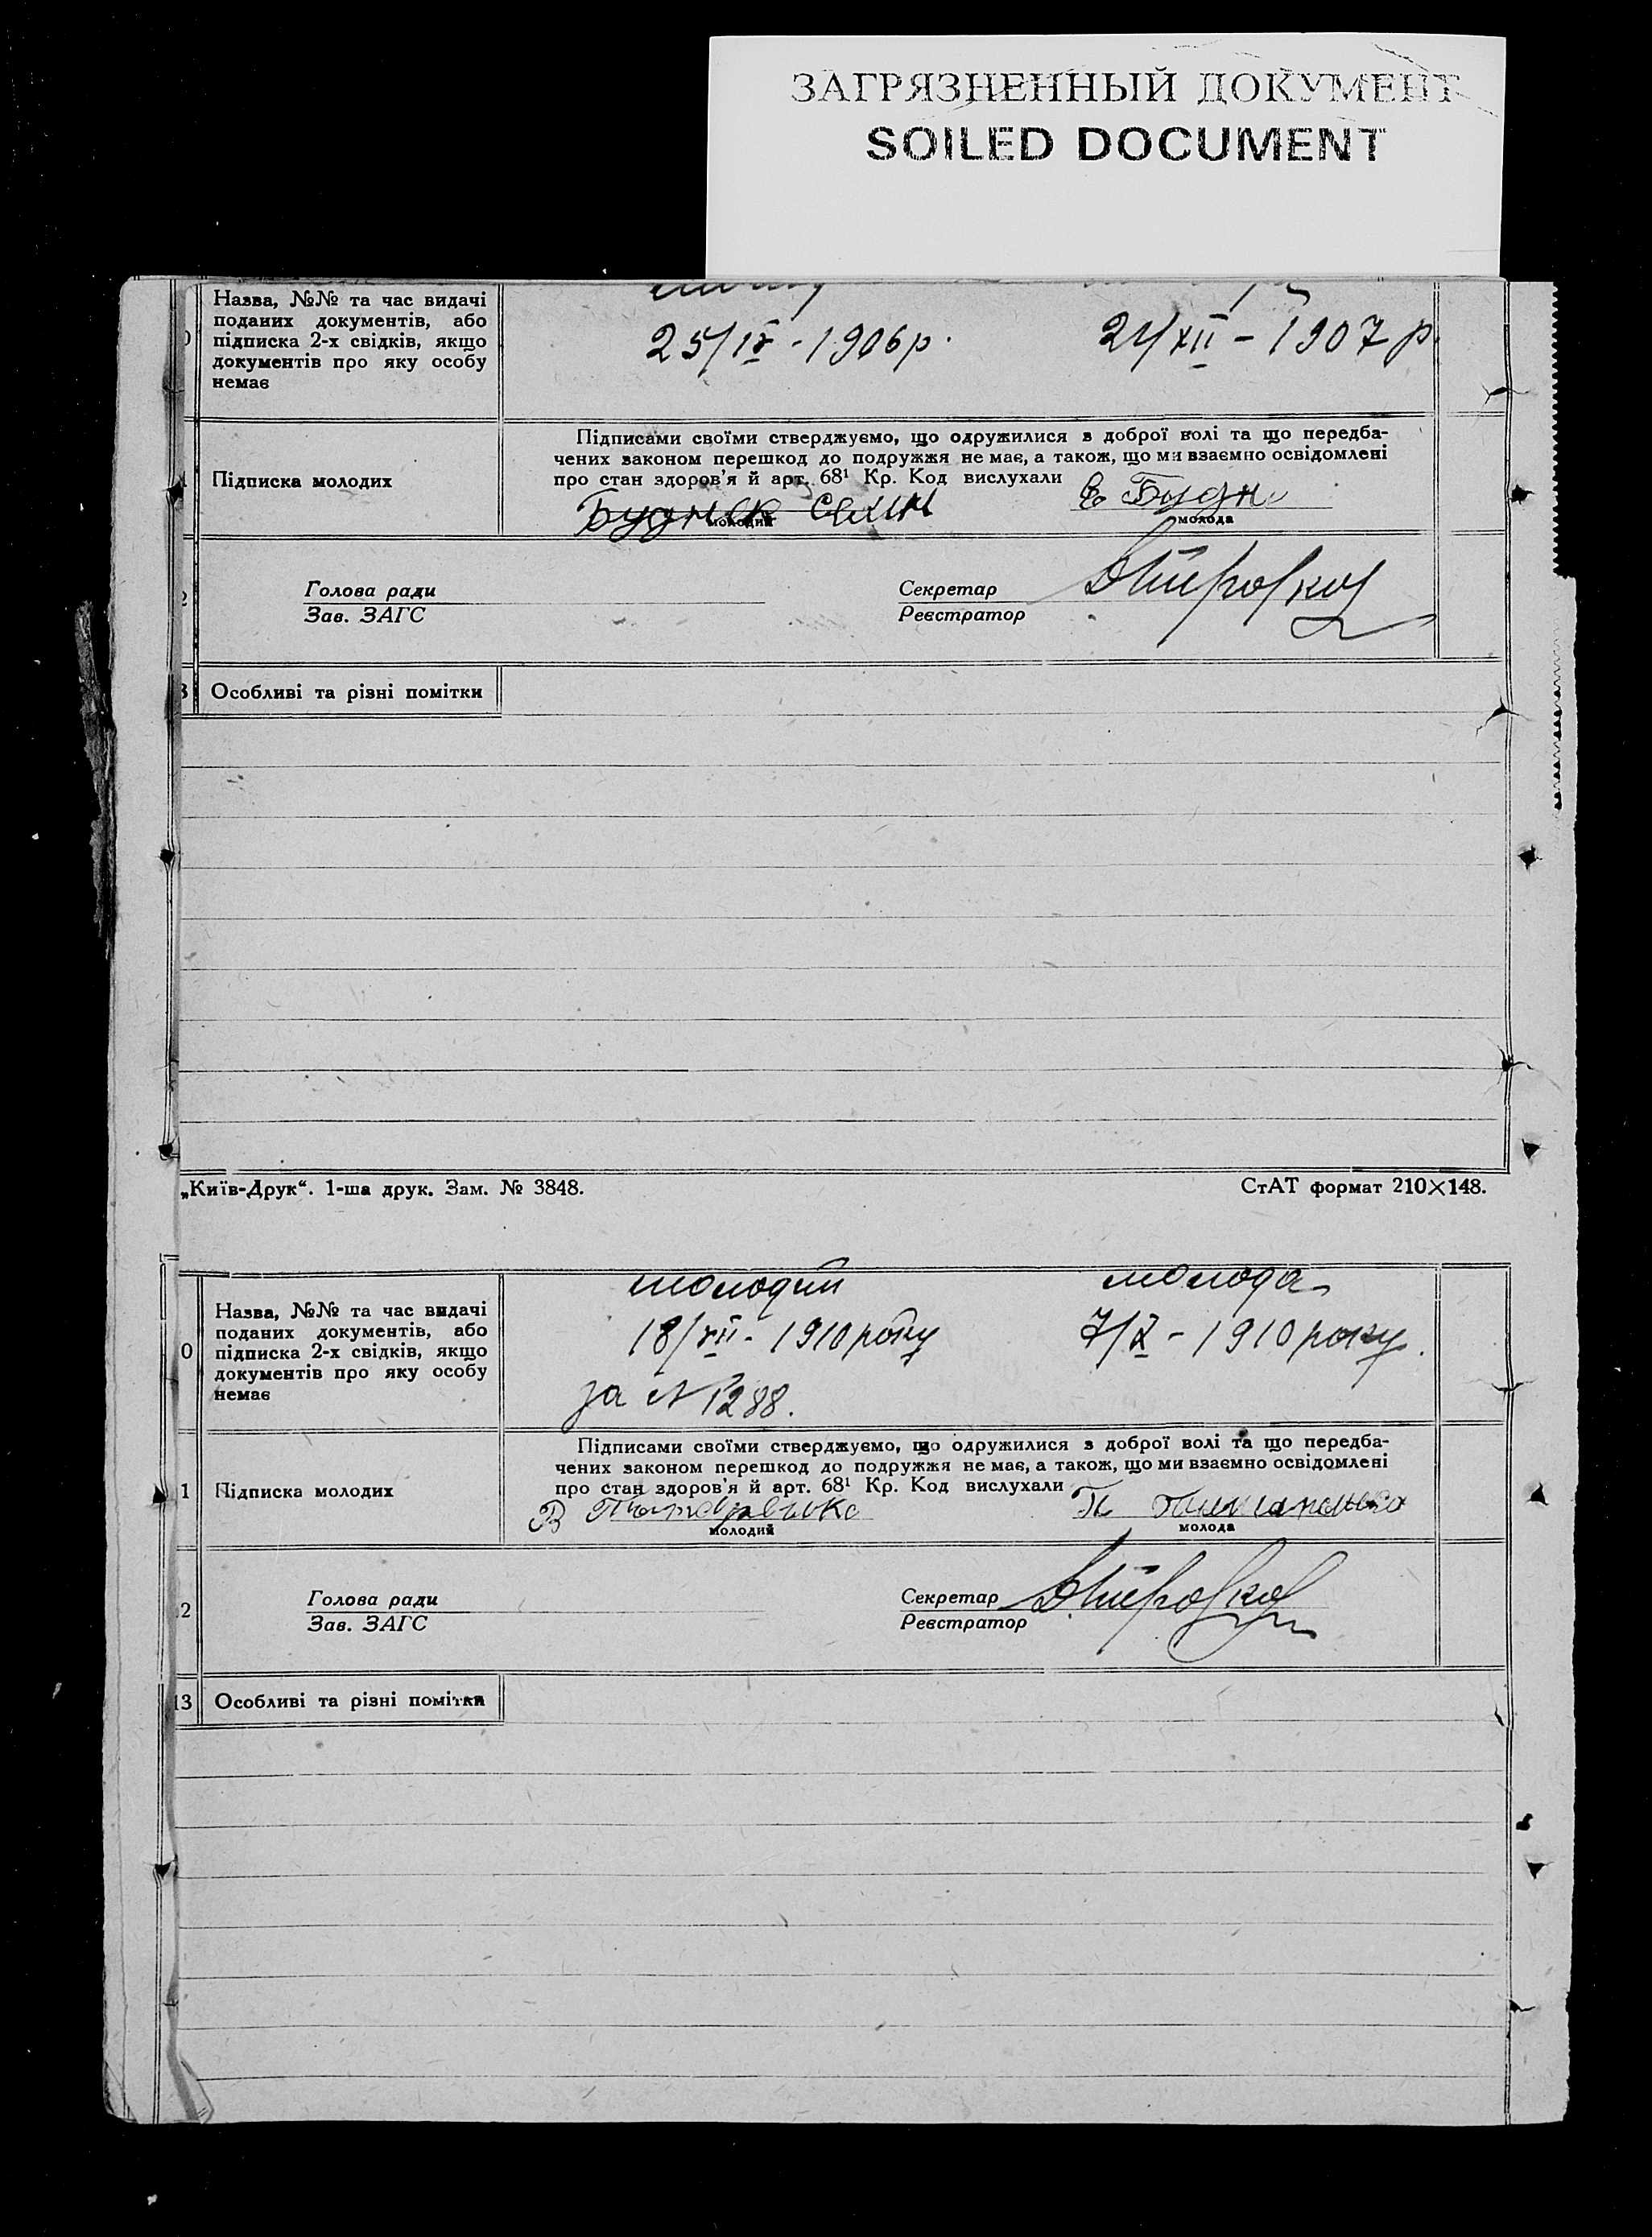 ЗАГРЯЗНЕННЫЙ ДОКУМЕНТ
SOILED DOCUMENT
Назва, №№ та час видачі
поданих документів, або
підписка 2-х свідків, якщо
документів про яку особу
немає
25/IV - 1906 р. 24/XII - 1907 р.
Підписами своїми стверджуємо, що одружилися з доброї волі та що передба-
чених законом перешкод до подружжя не має, а також, що ми взаємно освідомлені
про стан здоров'я й арт. 68¹ Кр. Код вислухали
Підписка молодих
молодий
молода
Голова ради
Зав. ЗАГС
Секретар
Реєстратор
Особливі та різні помітки
„Київ-Друк“. 1-ша друк. Зам. № 3848.
СтАТ формат 210×148.
молодий молода
0
Назва, №№ та час видачі
поданих документів, або
підписка 2-х свідків, якщо
документів про яку особу
немає
18/XII - 1910 року 7/X - 1910 року.
за № 1288.
Підписами своїми стверджуємо, що одружилися з доброї волі та що передба-
чених законом перешкод до подружжя не має, а також, що ми взаємно освідомлені
про стан здоров'я й арт. 68¹ Кр. Код вислухали
1 Підписка молодих
молодий
молода
2
Голова ради
Зав. ЗАГС
Секретар
Реєстратор
13 Особливі та різні помітки